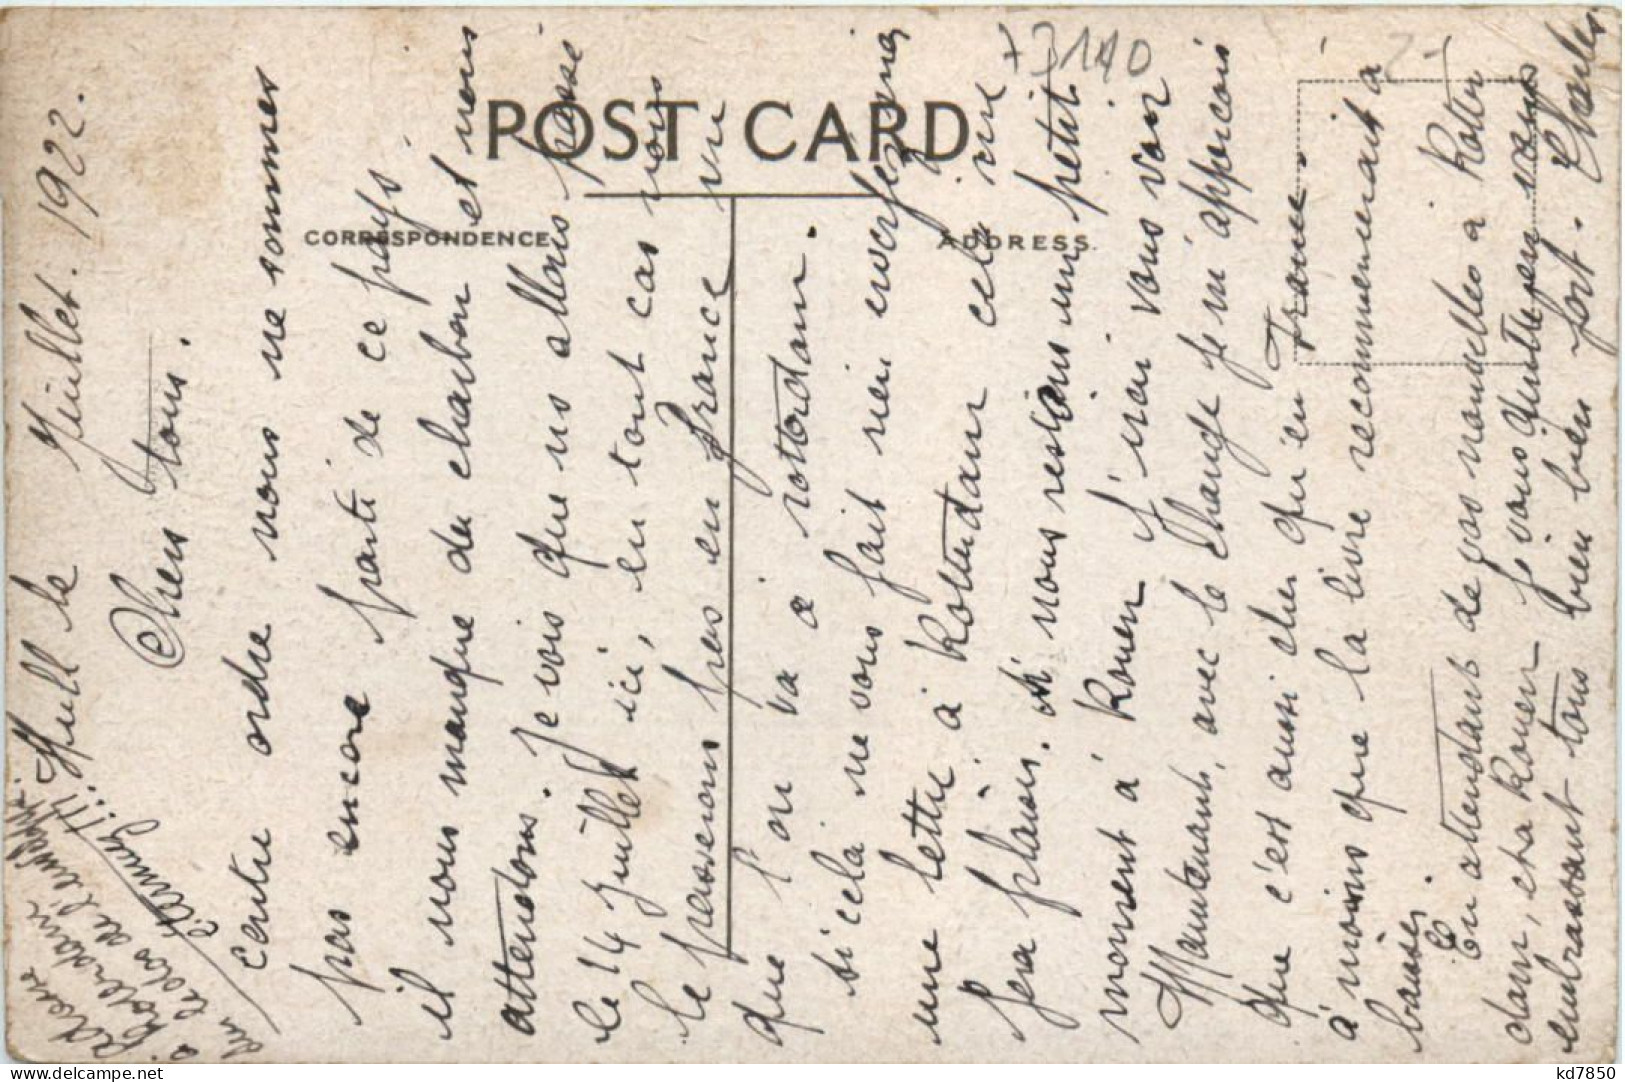 POST CARD
CORRESPONDENCE
ADDRESS.
+3110
Hull le Juillet. 1922.
Chers tous.
Contre ordre nous ne sommes
pas encore parti de ce pays
il nous manque du charbon et nous
attendons. Je vois que ns allons passé
le 14 Juillet ici, en tout cas nous
le passerons pas en France vu
que l'on va à rottordam.
si cela ne vous fait rien envoyez moi
une lettre à Rotterdam cela me
fera plaisir. si nous restions un petit
moment à Rouen j'irai vous voir
Maintenant, avec le change je m'apperçois
que c'est aussi cher qu'en France.
à moins que la livre recommencerait à
baisser.
En attendant de vos nouvelles à Rotter
dam, et à Rouen je vous quitte en vous
embrassant tous bien bien fort. Charles
Adresse
à Rotterdam
sur le dos de l'enveloppe
kd7850